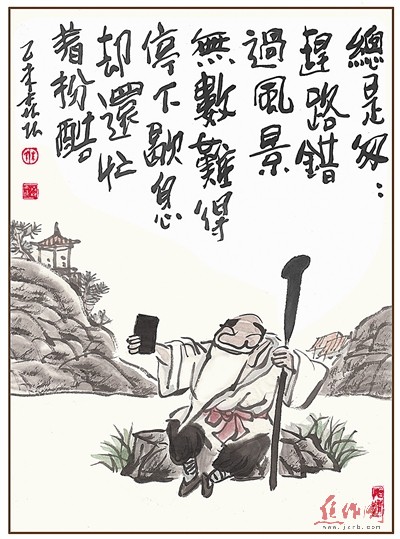 總是匆:
趕路錯
過風景
無數難得
停下歇息
却還忙
着扮酷
乙未
焦作网
www.jzrb.com